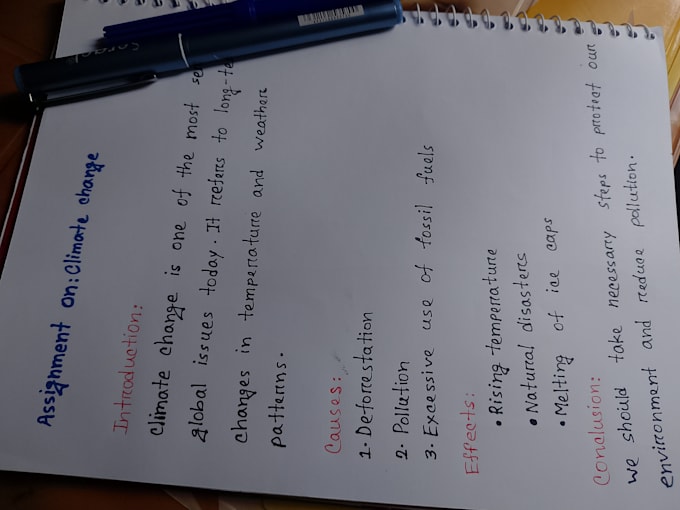 Assignment on: Climate change
Introduction:
Climate change is one of the most
global issues today. It refers to
changes in temperature and weather
patterns.
Causes:
1. Deforestation
2. Pollution
3. Excessive use of fossil fuels
Effects:
• Rising temperature
• Natural disasters
• Melting of ice caps
Conclusion:
we should take necessary steps to protect our
environment and reduce pollution.